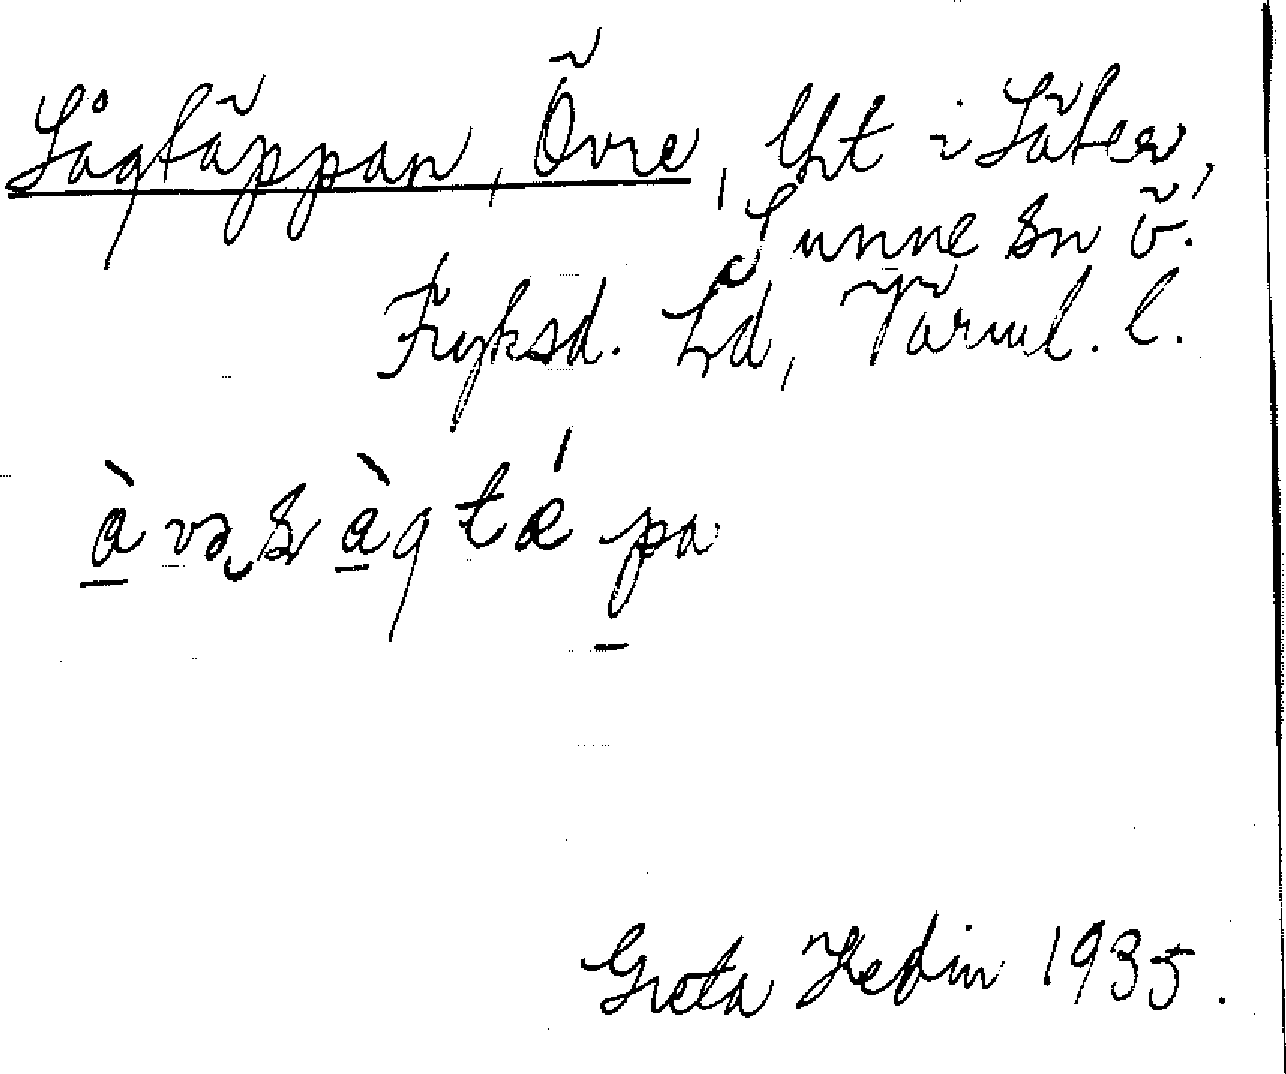 Sågtäppan, Övre, lht i Säter,
Sunne sn ö.
Fryksd. hd, Värml. l.
à və s àg tæ´ pa
Greta Hedin 1935.